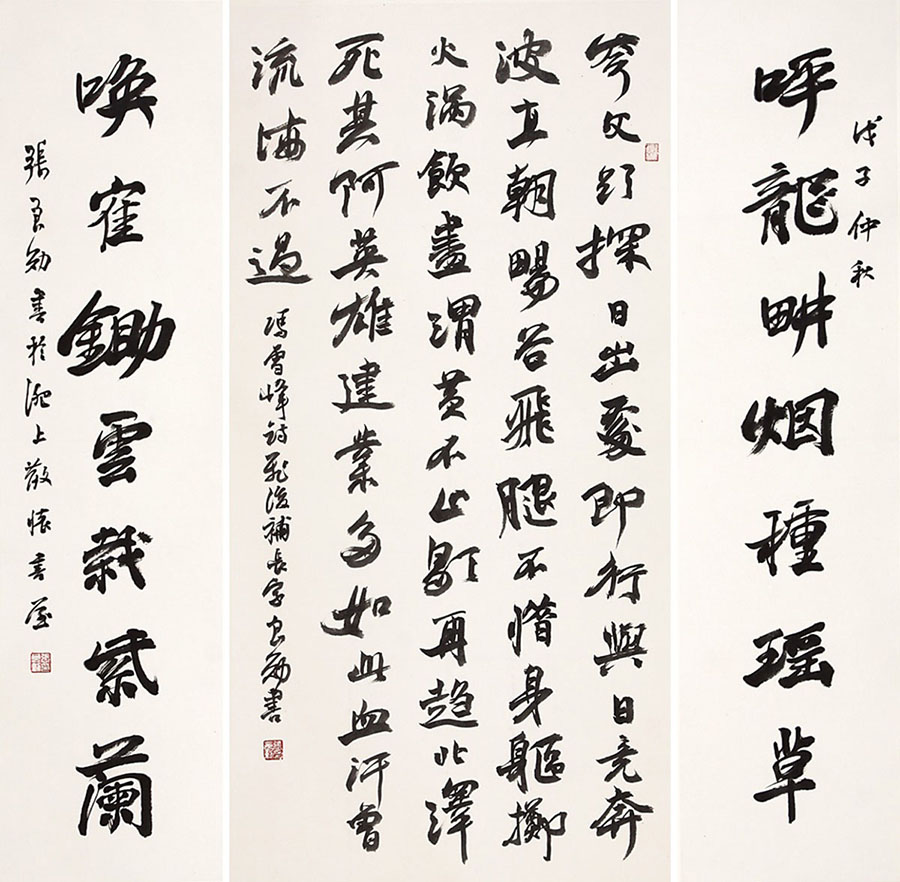 戊子仲秋
呼龍畊烟種瑶草
夸父欲探日出處即行與日竞奔
波直朝暘谷飛腿不惜身軀擲
火渦飲盡渭黄不止歇再趋北澤
死其阿英雄建業多如此血汗曾
流海不過
馮雪峰詩飛後補長字良勋書
唤隺鋤雲栽紫蘭
張良勋書於淝上散懷書屋